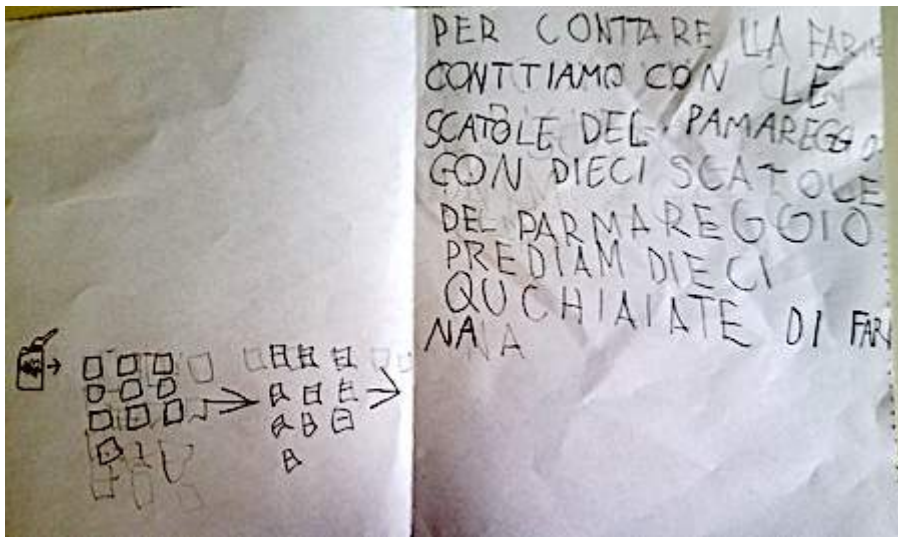 PER CONTTARE LLA FARNE
CONTTIAMO CON LE
SCATOLE DEL PAMAREGG
CON DIECI SCATOLE
DEL PARMAREGGIO
PREDIAM DIECI
QUCHIAIATE DI FAR
NA